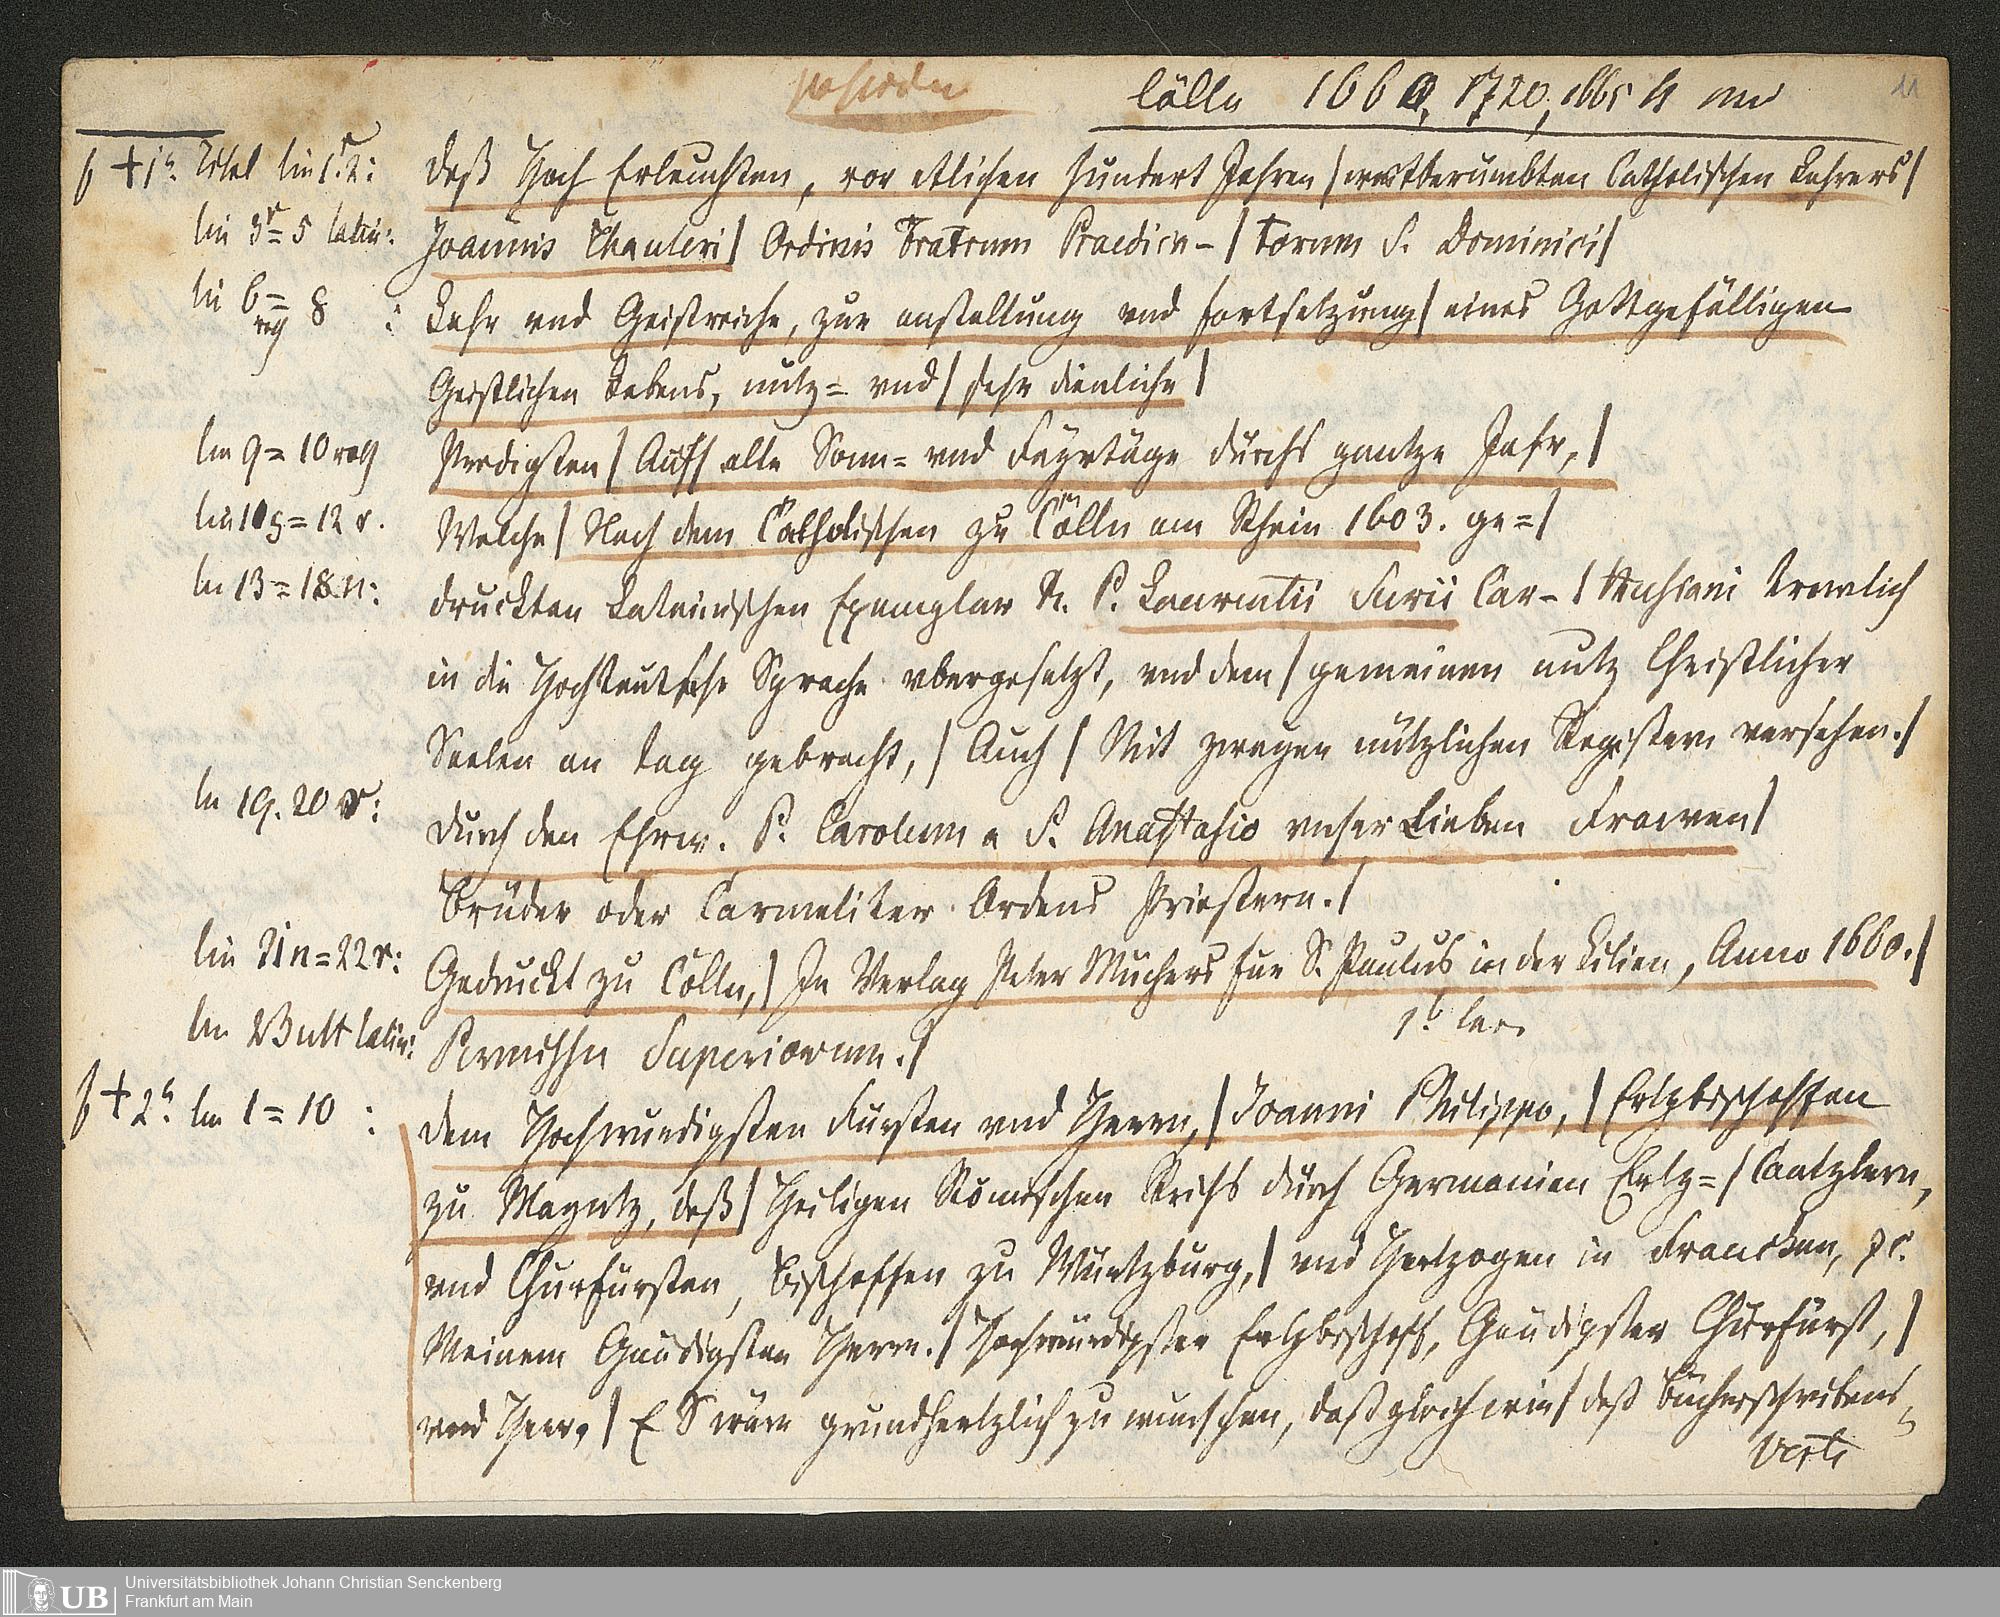 Cölln 1660, 1720, 1665 4 an
11
b +1a: Titel lin 1r.2: Deß Hoch Erleuchten, vor etlichen hundert Jahren / weitberümbten Catholischen Lehrers /
lin 3r = 5 latein: Joannis Thauleri / Ordinis Fratrum Praedica- / torum S. Dominici /
lin 6 = 8 : Lehr vnd Geistreiche, zur anstellung vnd fortsetzung / eines Gottgefälligen
Geistlichen Lebens, nutz= vnd / sehr dienliche /
lin 9 = 10 Predigten / Auff alle Sonn= vnd Feyrtäge durchs gantze Jahr, /
lin 10 = 12 r. Welche / Nach dem Catholischen zu Cölln am Rhein 1603. ge= /
lin 13 = 18 n: druckten Lateinischen Exemplar R. P. Laurentii Surii Car- / thusiani trewlich
in die Hochteutsche Sprache vbergesetzt, vnd dem / gemeinen nutz Christlicher
Seelen an tag gebracht, / Auch / Mit zweyen nützlichen Registern versehen. /
lin 19. 20 r: Durch den Ehrw. P. Carolum a S. Anastasio vnser Lieben Frawen /
brüder oder Carmeliter Ordens Priestern. /
lin 21n = 22 r: Gedruckt zu Cölln, / In Verlag Peter Müchers für S. Paulus in der Lilien, Anno 1660. /
1b leer
lin 23 ult latein: Permissu Superiorum. /
b + 2a: lin 1 = 10 : Dem Hochwürdigsten Fürsten vnd Herrn, / Joanni Philippo, / Ertzbischoffen
zu Mayntz, deß / Heiligen Römischen Reichs durch Germanien Ertz= / Cantzlern,
vnd Churfürsten, Bischoffen zu Würtzburg, / vnd Hertzogen in Francken, ꝛc.
Meinem Gnädigsten Herrn. / Hochwürdigster Ertzbischoff, Gnädigster Churfürst, /
vnd Herr, / E S wäre grundhertzlich zu wünschen, daß gleich wie / deß Bücherschreibens,
verte
Universitätsbibliothek Johann Christian Senckenberg
UB Frankfurt am Main